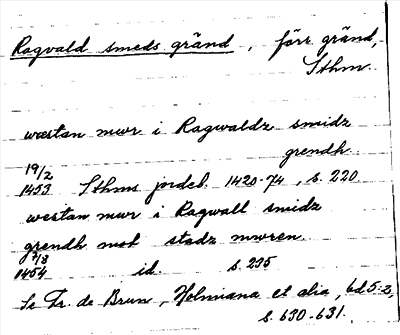 Ragvald smeds gränd, förr gränd,
Sthm.
wæstan mwr i Ragwaldz smidz
grendh.
19/2
1453 Sthms jordeb. 1420-74, s. 220
westan mwr i Ragwall smidz
grendh mot stadz mwren.
7/8
1454 id. s. 235
Se Fr. de Brun, Holmiana et alia, bd 5:2,
s. 630-631.